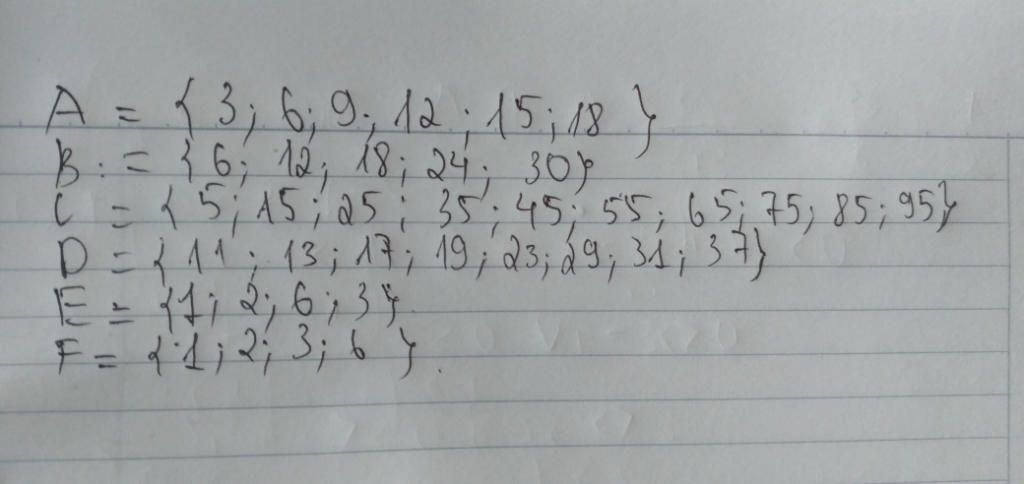 A = { 3; 6; 9; 12; 15; 18 }
B := { 6; 12; 18; 24; 30}
C = { 5; 15; 25; 35; 45; 55; 65; 75; 85; 95}
D = { 11; 13; 17; 19; 23; 29; 31; 37}
E = {1; 2; 6; 3}
F = { 1; 2; 3; 6 }.